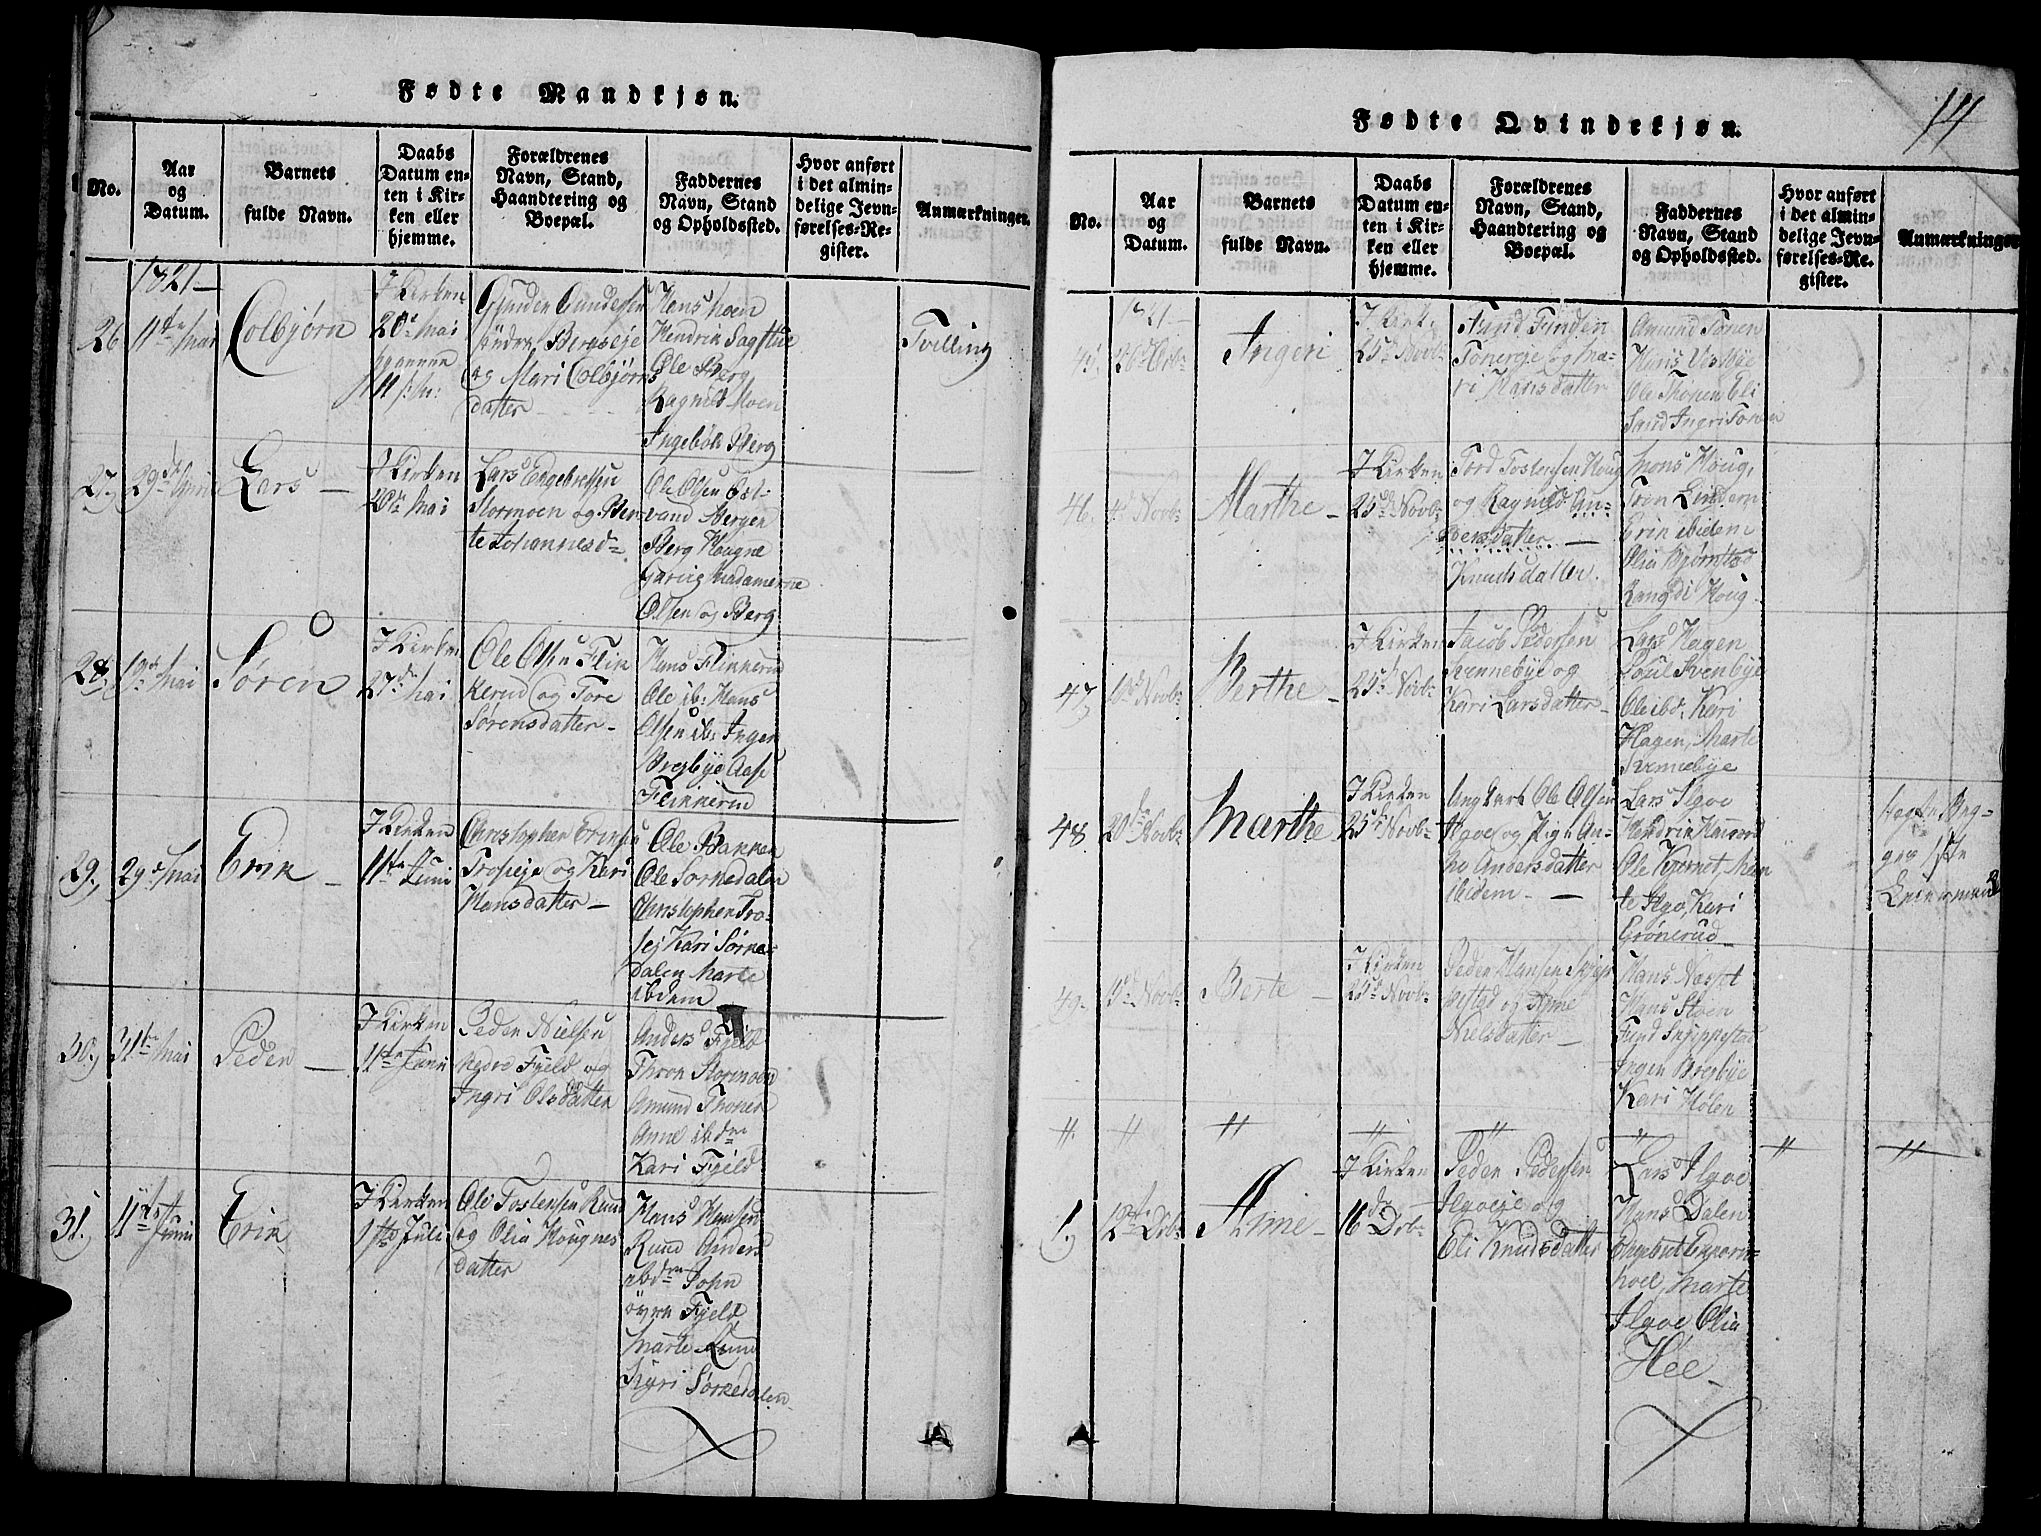 Fødte Mandkjøn.
No.
Aar
og
Datum.
Barnets
fulde Navn.
Daabs
Datum en-
ten i Kir-
ken eller
hjemme.
Forældrenes
Navn, Stand,
Haandtering og
Boepæl.
Faddernes
Navn, Stand
og Opholdssted.
Hvor anført
i det almin-
delige Jevn-
førelses-Re-
gister.
Anmærkninger.
1821
26
11te Mai
Colbjørn
I Kirken
20de Mai
Gunder Gundersen
Søndre Bergseje
og Mari Colbjørns
datter
Hans Moen
Hendrik Sagstue
Ole Berg
Ragnild Moen
Ingebør Berg
Tvilling
27.
29de
Lars
I Kirken
20de Mai
Lars Engebretsen
Stormoen og Ber-
te Johannesd
Ole Olsen Øst-
vand Bergen
Berg Hougne
Garvig Madamerne
Olsen og Berg
28.
19de Mai
Søren
I Kirken
27de Mai
Ole Olsen Flik
kerud og Tore
Sørensdatter
Hans Flikkerud
Ole ib: Hans
Olsen ib: Inger
Brejbye Aase
Flikkerud
29.
29de Mai
Erik
I Kirken
11te Juni
Christopher Eriksen
Troseje og Kari
Hansdatter
Ole Bakken
Ole Sørkedalen
Christopher Tro-
sej Kari Sørke-
dalen Marte
ibdem
30.
31te Mai
Peder
I Kirken
11te Juni
Peder Nielsen
Nedre Fjeld og
Ingri Olsdatter
Anders Fjeld
Thron Stormoen
Amund Thonen
Anne ibdm
Kari Fjeld
31.
11te Juni
Erik
I Kirken
1ste Juli
Ole Tostensen Rund
og Olia Hougnes
datter
Hans Hansen
Rund Anders
ibdm John
øvre Fjeld
Marte Rund
Sigri Sørkedalen
Fødte Qvindekjøn.
14
No.
Aar
og
Datum.
Barnets
fulde Navn.
Daabs
Datum en-
ten i Kir-
ken eller
hjemme.
Forældrenes
Navn, Stand,
Haandtering og
Boepæl.
Faddernes
Navn, Stand
og Opholdssted.
Hvor anført
i det almin-
delige Jevn-
førelses-Re-
gister.
Anmærkninger
1821
45.
26
Ingeri
I Kirk.
25de Novbr
Tonereje og Ma-
ri Hansdatter
Amund Tonen
Hans Vestbye
Ole Thonen Eli
Sand Ingri Tonen
46.
4de Novbr
Marthe
I Kirken
25de Novbr
Tord Tostensen Houg
og Ragnild An-
dersdatter
Knudsdatter.
Mons Houg,
Tron Lindem
Erik ibidem
Olia Bjørnstad
Rangdi Houg
47
10de Novbr
Berthe
I Kirken
25de Novbr
Jacob Pedersen
Svennebye og
Kari Larsdatter
Lars Hagen
Poul Svenbye
Ole ibd. Kari
Hagen, Marte
Svennebye
48.
20de Novbr
Marthe
I Kirken
25de Novbr
Ungkarl Ole Olsen
Ilgoe og Pige An-
ne Andersdatter
ibidem
Lars Ilgoe
Hendrik
Ole Kjernet, Mar
te Ilgo, Kari
Grønerud
Begge
1ste
Leiermaal
49.
5de Novbr
Berte
I Kirken
25de Novbr
Peder Hansen Skjep
pestad og Anne
Nielsdatter
Hans Næsset
Hans Moen
Knud Skjeppestad
Inger Brejbye
Kari Holen
"
"
"
"
"
"
"
"
1.
12te Decbr
Anne
I Kirken
16de Decbr
Peder Pedersen
Ilgoeje og
Eli Knudsdatter
Lars Ilgoe
Hans Dalen
Engebret
hoel, Marte
Ilgoe Olia
Hee